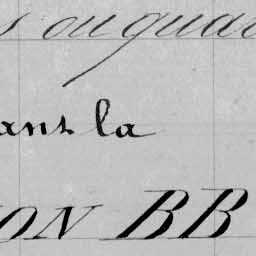 s ou qua
ans la
ON BB